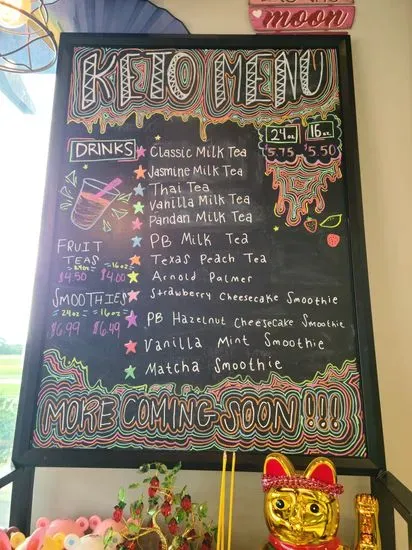 moon
KETO MENU
DRINKS
24oz 16oz
$5.75 $5.50
Classic Milk Tea
Jasmine Milk Tea
Thai Tea
Vanilla Milk Tea
Pandan Milk Tea
PB Milk Tea
Texas Peach Tea
Arnold Palmer
Strawberry Cheesecake Smoothie
PB Hazelnut Cheesecake Smoothie
Vanilla Mint Smoothie
Matcha Smoothie
FRUIT
TEAS
24oz 16oz
$4.50 $4.00
SMOOTHIES
24oz 16oz
$6.99 $6.49
MORE COMING SOON!!!